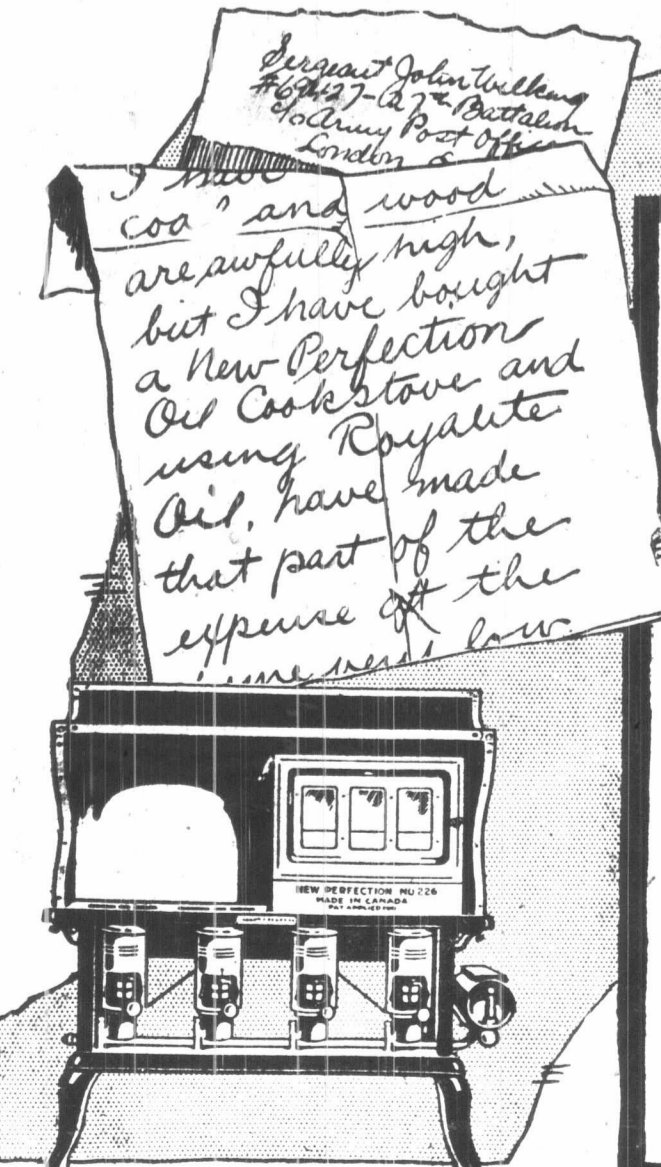 Sergeant John Wilkins
Battalion
c/o Army Post Office
London
I have
coal and wood
are awfully high,
but I have bought
a New Perfection
Oil Cookstove and
using Royalite
Oil, have made
that part of the
expense of the
home very low.
NEW PERFECTION NO 226
MADE IN CANADA
PAT APPLIED FOR